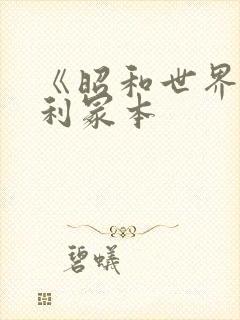 《昭和世界
利冢本
碧蟻